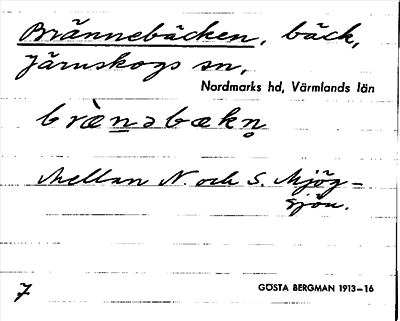 Brännebäcken, bäck,
Järnskogs sn,
Nordmarks hd, Värmlands län
brὲn̲əbækn̥
Mellan N. och S. Mjög-
sjön.
7
GÖSTA BERGMAN 1913–16